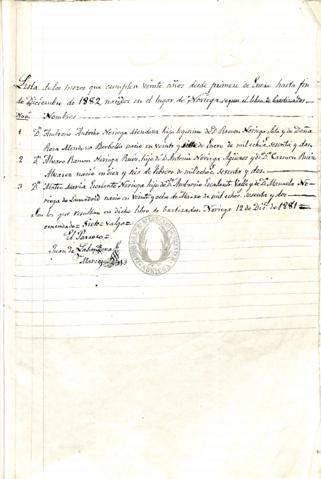 Lista de los mozos que cumplen veinte años desde primero de Enero hasta fin
de Diciembre de 1882 nacidos en el lugar de Noriega segun el libro de bautizados.
Num Nombres
1 D. Ambrosio Antonio Noriega Mendoza hijo legitimo de D. Ramon Noriega y de Doña
Rosa Mendoza Borbolla nació en veinte y siete de Enero de mil ocho sesenta y dos
2 D. Alvaro Ramon Noriega Ruiz, hijo D. Antonio Noriega y D.ª Carmen Ruiz
Alvaro nació en diez y seis de Febrero de mil ocho sesenta y dos
3 D. Mateo Maria Escalante Noriega hijo de D. Ambrosio Escalante Valle y de D.ª Manuela No-
riega de nació en Veinte y ocho de Marzo de mil ocho sesenta y dos
Son los que resultan en dicho libro de bautizados. Noriega 12 de Dic.e de 1881=
enmendado = siete = valga=
El Parroco
Juan de